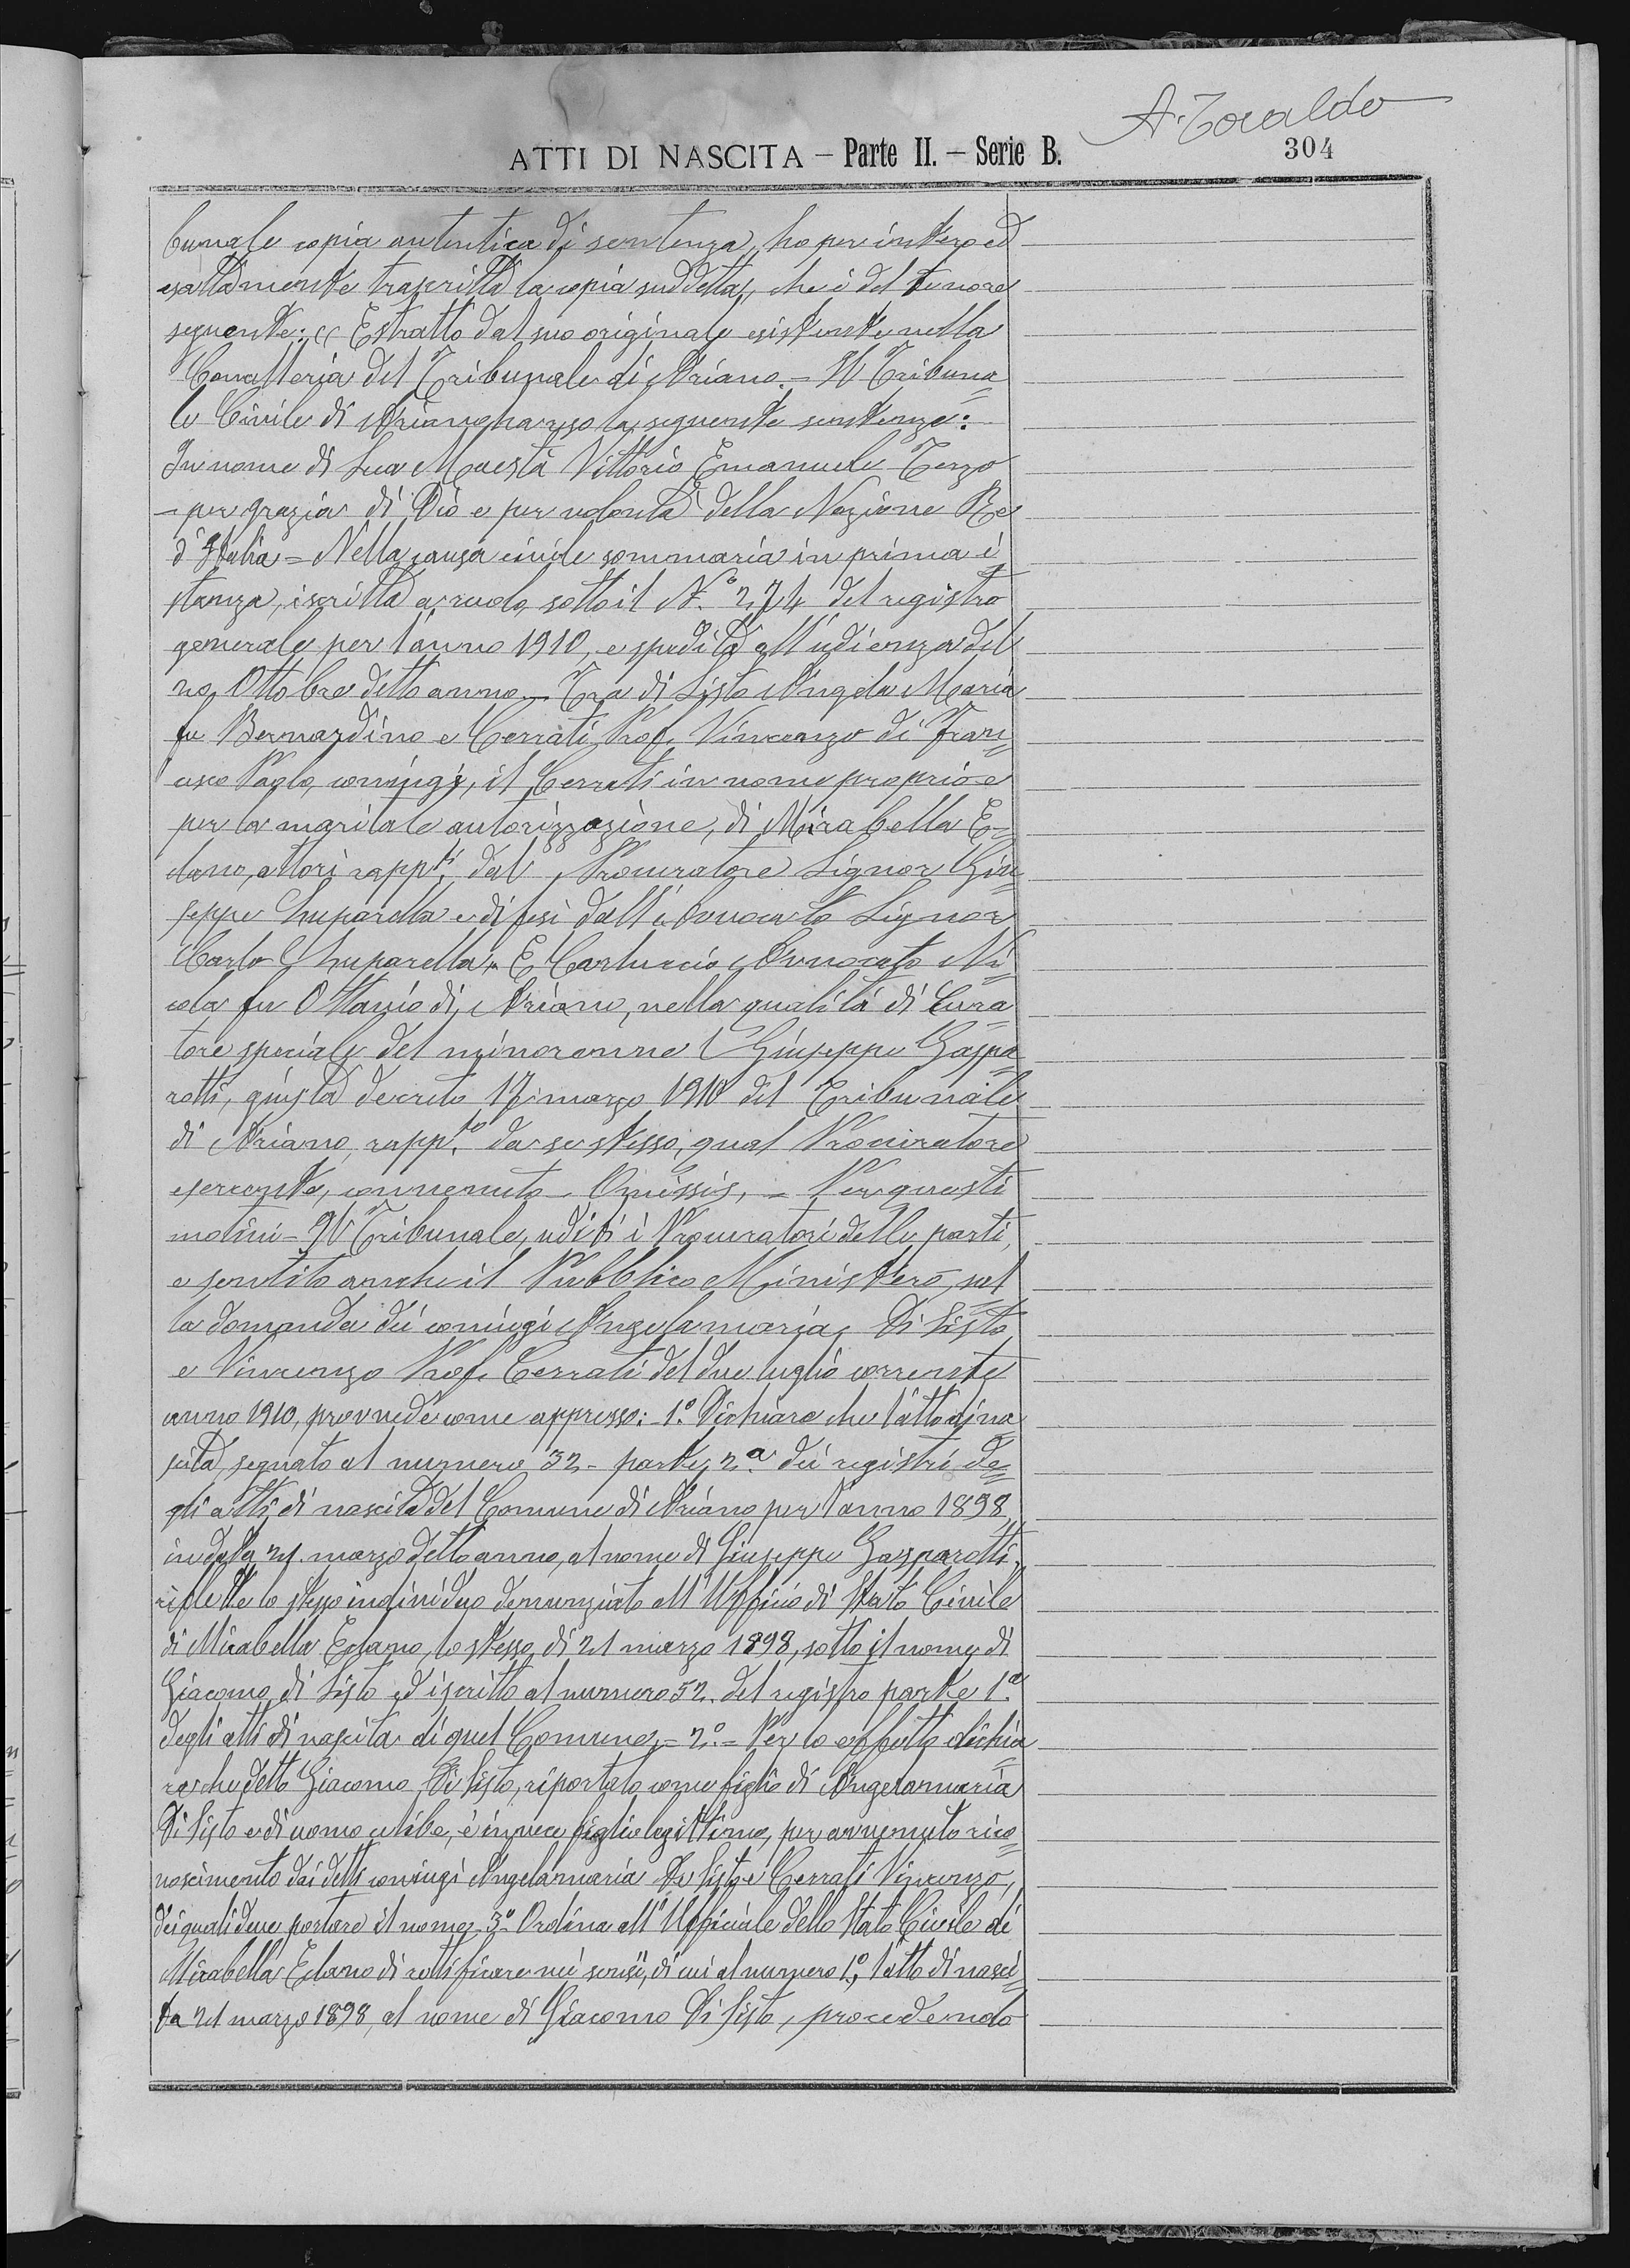 A. Toraldo
304
ATTI DI NASCITA – Parte II. – Serie B.
bunale copia autentica di sentenza, ho per intero ed
esattamente trascritta la copia suddetta, che è del tenore
seguente: « Estratto dal suo originale esistente nella
Cancelleria del Tribunale di Ariano. = Il Tribuna=
le Civile di Ariano ha reso la seguente sentenza:
In nome di Sua Maestà Vittorio Emanuele Terzo
– per grazia di Dio e per volontà della Nazione Re
d'Italia = Nella causa civile sommaria in prima i=
stanza, iscritta a ruolo sotto il N.° 274 del registro
generale per l'anno 1910, e spedita all'udienza del
Ottobre detto anno – Tra di Sisto Angela Maria
fu Bernardino e Cerrati Prof. Vincenzo di Fran=
cesco Paolo, coniugi, il Cerrati in nome proprio e
per la maritale autorizzazione, di Mirabella E=
clano, attori rapp.ti dal Procuratore Signor Giu=
seppe Luparella e difesi dall'Avvocato Signor
Carlo Luparella, E Carluccio Avvocato Ni=
cola fu Ottavio di Ariano, nella qualità di Cura=
tore speciale del minorenne Giuseppe Gaspa=
rotti, giusta decreto 17 marzo 1910 del Tribunale
di Ariano, rapp.to da se stesso, qual Procuratore
esercente, convenuto – Omissis, – Per questi
motivi – Il Tribunale, uditi i Procuratori delle parti,
e sentito anche il Pubblico Ministero, sul=
la domanda dei coniugi Angelamaria Di Sisto
e Vincenzo Prof. Cerrati del due luglio corrente
anno 1910, provvede come appresso: – 1.° Dichiara che l'atto di na=
scita, segnato al numero 32 – parte 2.a dei registri de=
gli atti di nascita del Comune di Ariano per l'anno 1898,
in data 21 marzo detto anno, al nome di Giuseppe Gasparotti,
riflette lo stesso individuo denunziato all'Ufficio di Stato Civile
di Mirabella Eclano, lo stesso dì 21 marzo 1898, sotto il nome di
Giacomo di Sisto ed iscritto al numero 52 del registro parte 1.a
degli atti di nascita di quel Comune, = 2.° = Per lo effetto dichia=
ra che detto Giacomo Di Sisto, riportato come figlio di Angelamaria
Di Sisto e di uomo celibe, è invece figlio legittimo, per avvenuto rico=
noscimento dai detti coniugi Angelamaria Di Sisto e Cerrati Vincenzo,
dei quali deve portare il nome – 3.° Ordina all'Ufficiale dello Stato Civile di
Mirabella Eclano di rettificare nei sensi, di cui al numero 1.°, l'atto di nasci=
ta 21 marzo 1898, al nome di Giacomo Di Sisto, procedendo